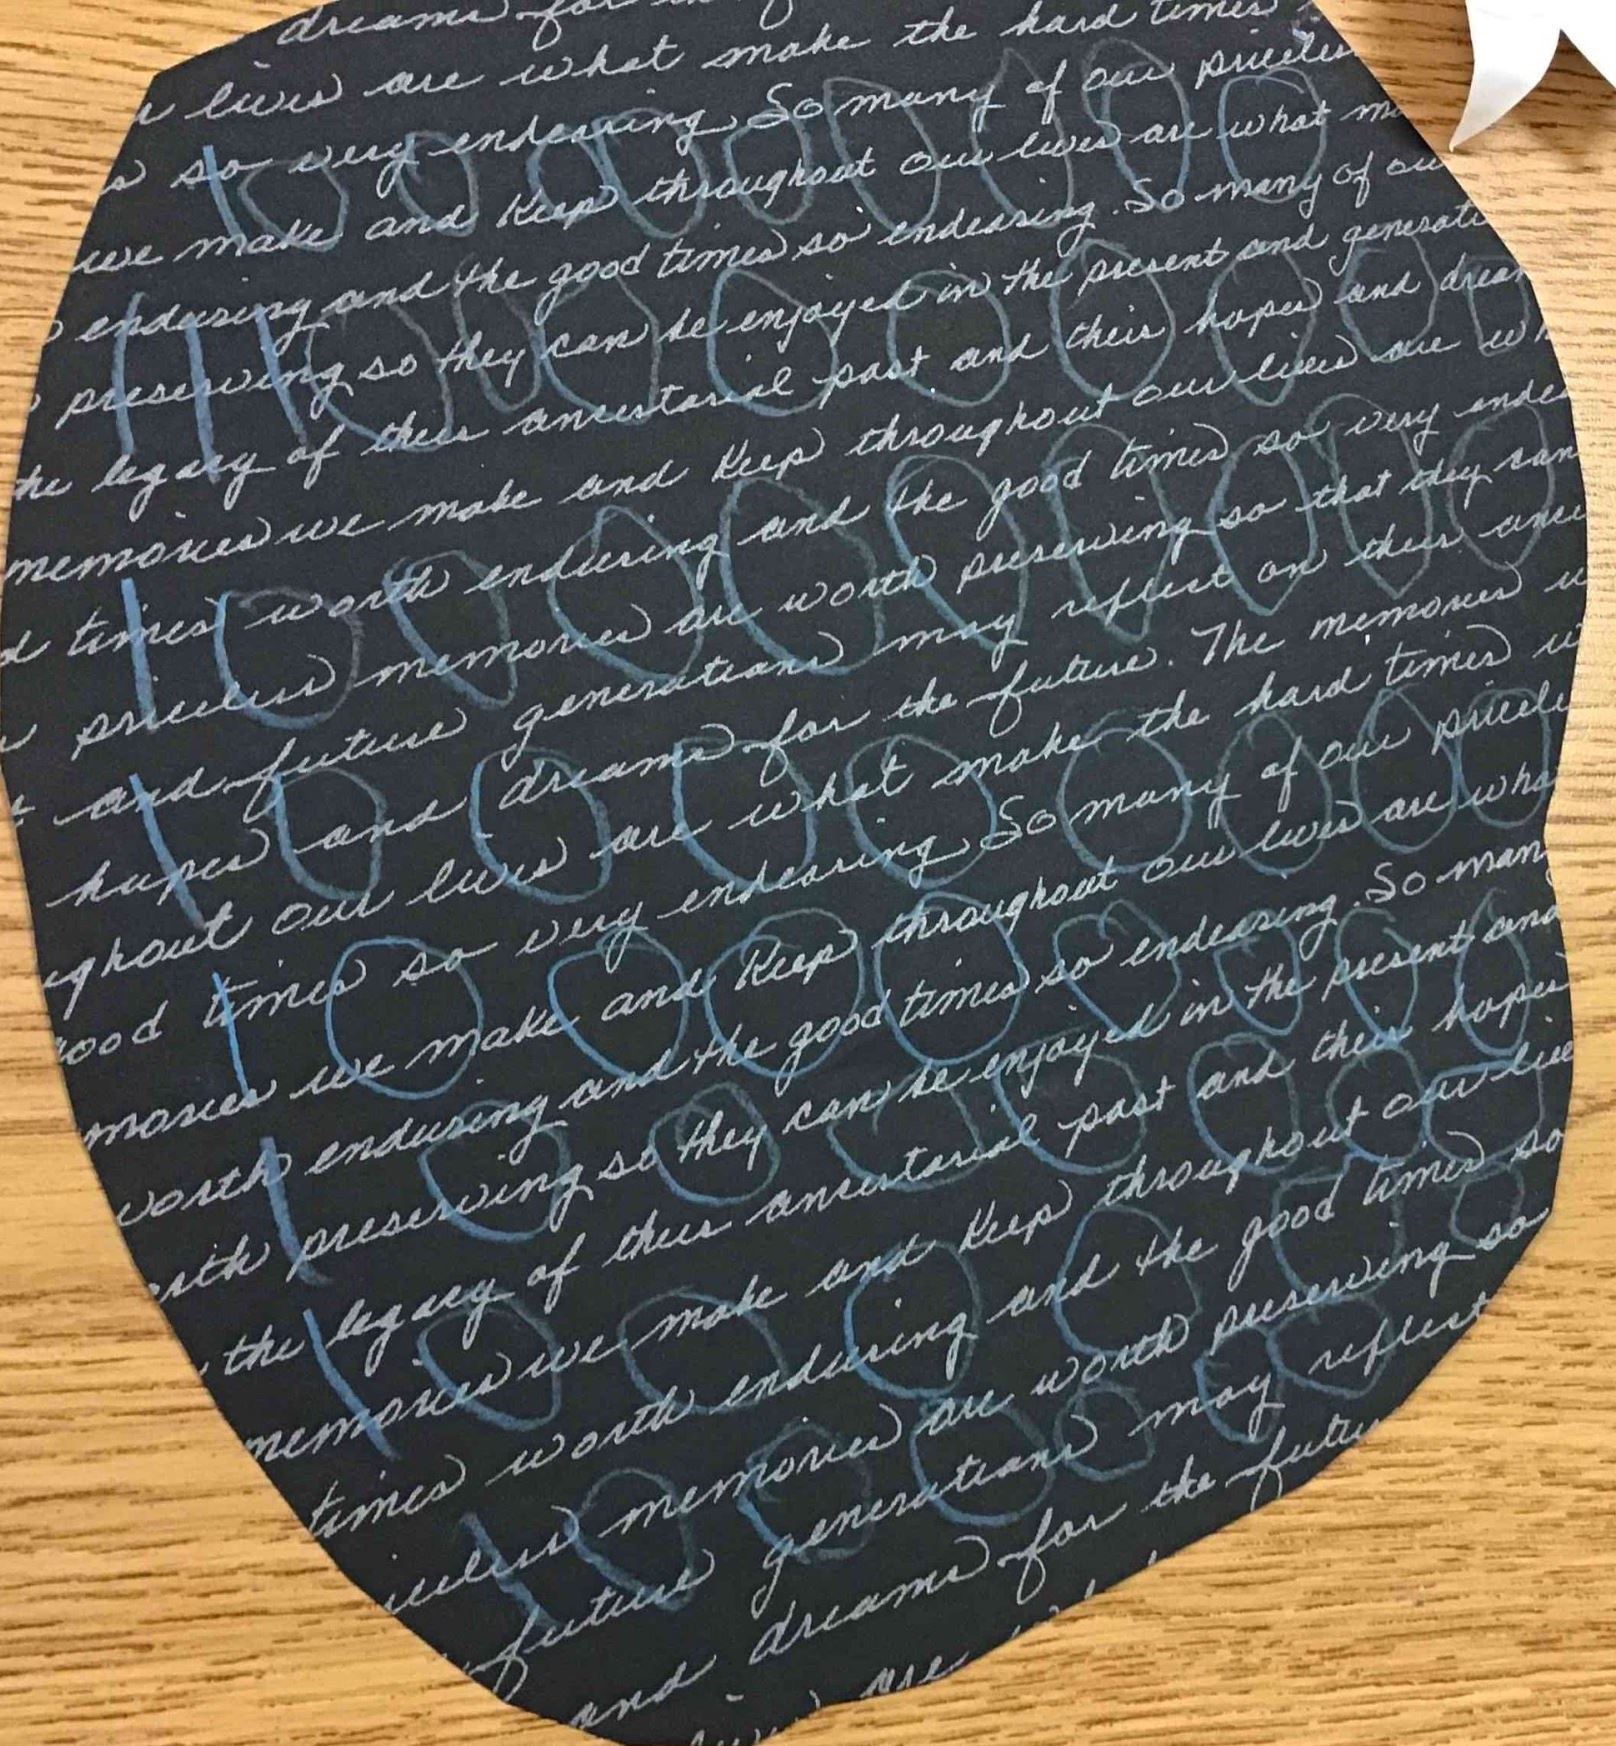 dreams for
lives are what make the hard times
so very endearing. So many of our priceless
we make and keep throughout our lives are what
enduring and the good times so endearing. So many of our
preserving so they can be enjoyed in the present and
the legacy of their ancestorial past and their hopes and
memories we make and keep throughout our lives are
times worth enduring and the good times so very
priceless memories are worth preserving so that they can
and future generations may reflect on their
hopes and dreams for the future. The memories
our lives are what make the hard times
good times so very endearing. So many of our
we make and keep throughout our lives are
worth enduring and the good times so endearing. So many
preserving so they can be enjoyed in the present and
the legacy of their ancestorial past and their hopes
memories we make and keep throughout our
times worth enduring and the good times so
memories are worth preserving so
future generations may reflect
and dreams for the
are